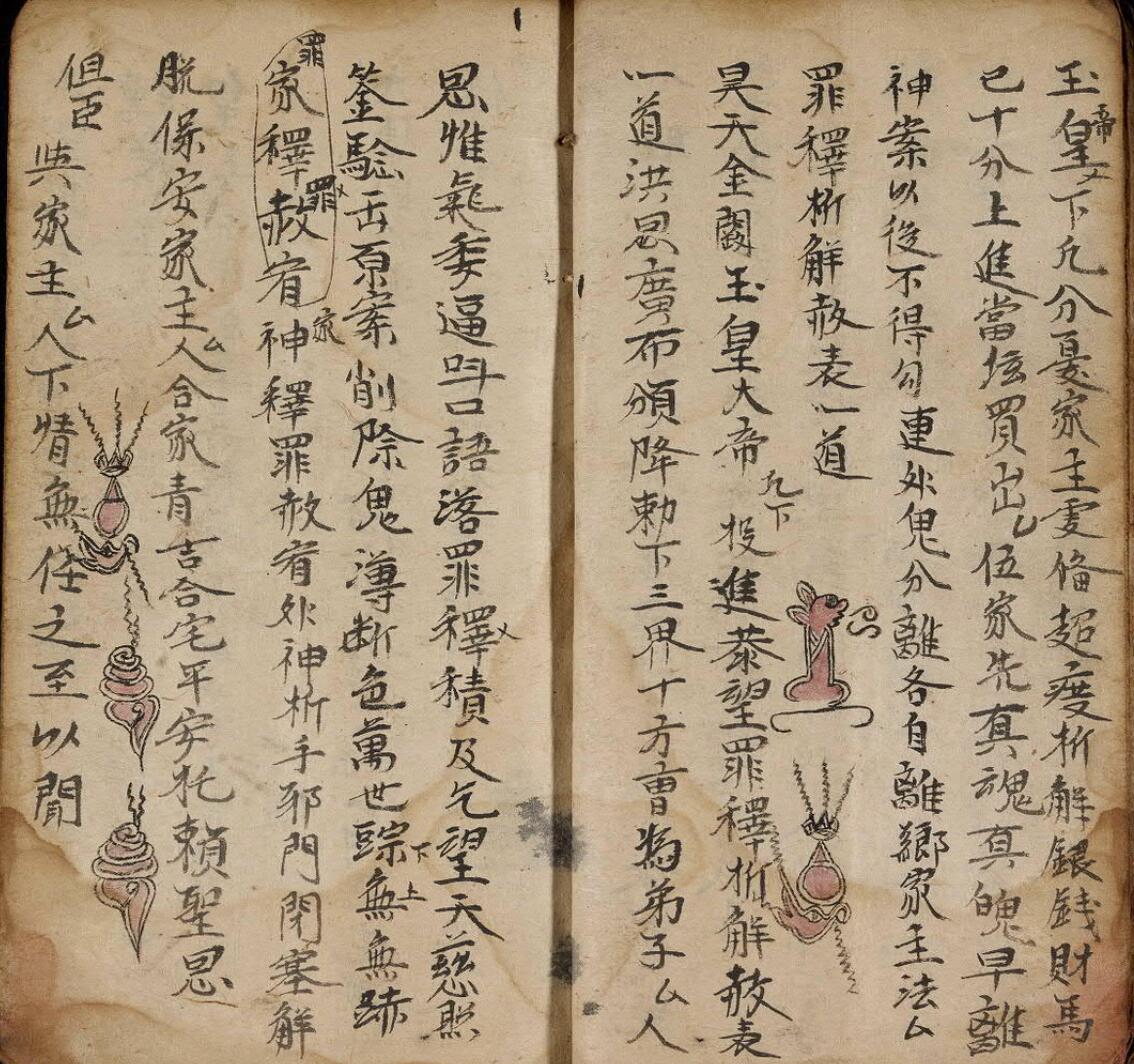 玉皇帝厶下九分憂家主虔脩超度析解銀錢財馬
已十分上進當壇買出厶伍家先真魂真魄早離
神案以後不得勾連外鬼分離各自離鄉家主法厶
罪釋析解赦表一道
昊天金闕玉皇大帝 九下 投進恭望罪釋析解赦表
一道洪恩廣布頒降勅下三界十方曹為弟子厶人
恩惟 委逼 口語落罪釋積及乞望天慈熙
筌驗 原案削除鬼 断色萬世踪下無上無跡
罪家釋罪赦宥家神釋罪赦宥外神析手邪門閉塞解
脱保安家主厶人合家青吉合宅平安托賴聖恩
但臣
與家主厶人下情無任之至以聞